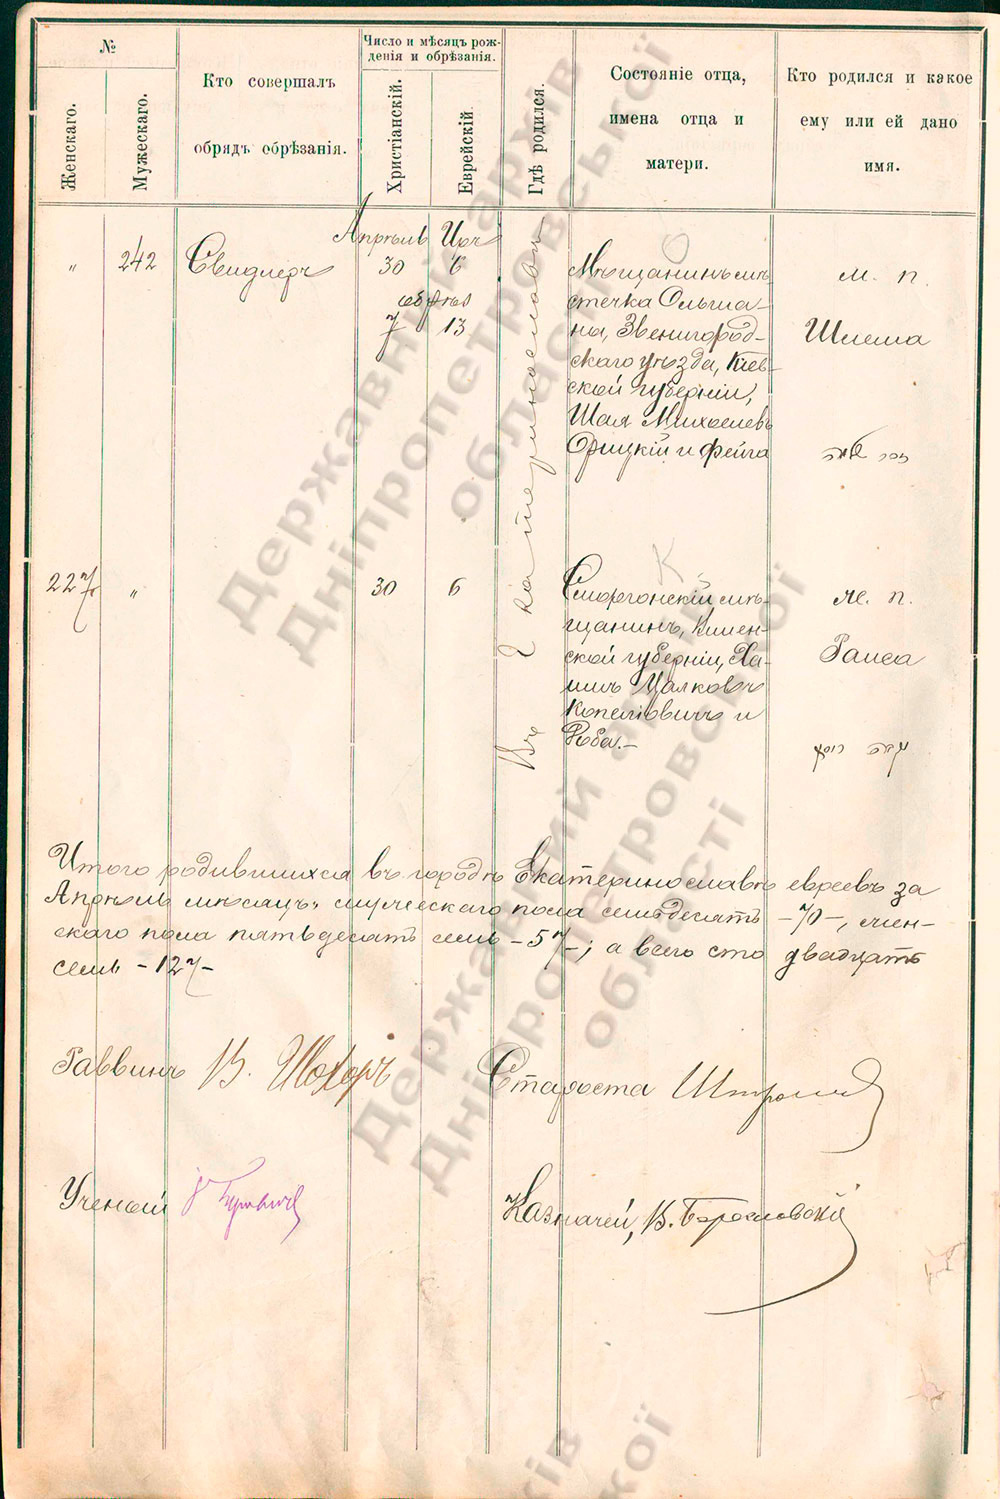 №
Женскаго.
Мужескаго.
Кто совершалъ
обрядъ обрѣзанія.
Число и мѣсяцъ рож-
денія и обрѣзанія.
Христіанскій.
Еврейскій.
Гдѣ родился.
Состояніе отца,
имена отца и
матери.
Кто родился и какое
ему или ей дано
имя.
Апрѣль Іяръ
" 242 Свидлеръ 30 6
обрѣз
7 13
Въ г Екатеринославѣ
Мѣщанинъ мѣ-
стечка Ольша-
ны, Звенигород-
скаго уѣзда, Кіев-
ской губерніи,
Шая Михелевъ
Орицкій и Фейга
м. п.
Шлема
227 " 30 6
Сморгонскій мѣ-
щанинъ, Вилен-
ской губерніи, Ха-
имъ Цалковъ
Копелiовичъ и
Роба.-
ж. п.
Раиса
Итого родившихся въ городѣ Екатеринославѣ евреевъ за
Апрѣль мѣсяцъ: мужескаго пола семьдесятъ -70-, жен-
скаго пола пятьдесятъ семь -57-; а всего сто двадцать
семь -127-
Раввинъ В. Шохоръ
Староста
Ученый
Казначей, В.
Державний архів
Дніпропетровської
області
Державний архів
Дніпропетровської
області